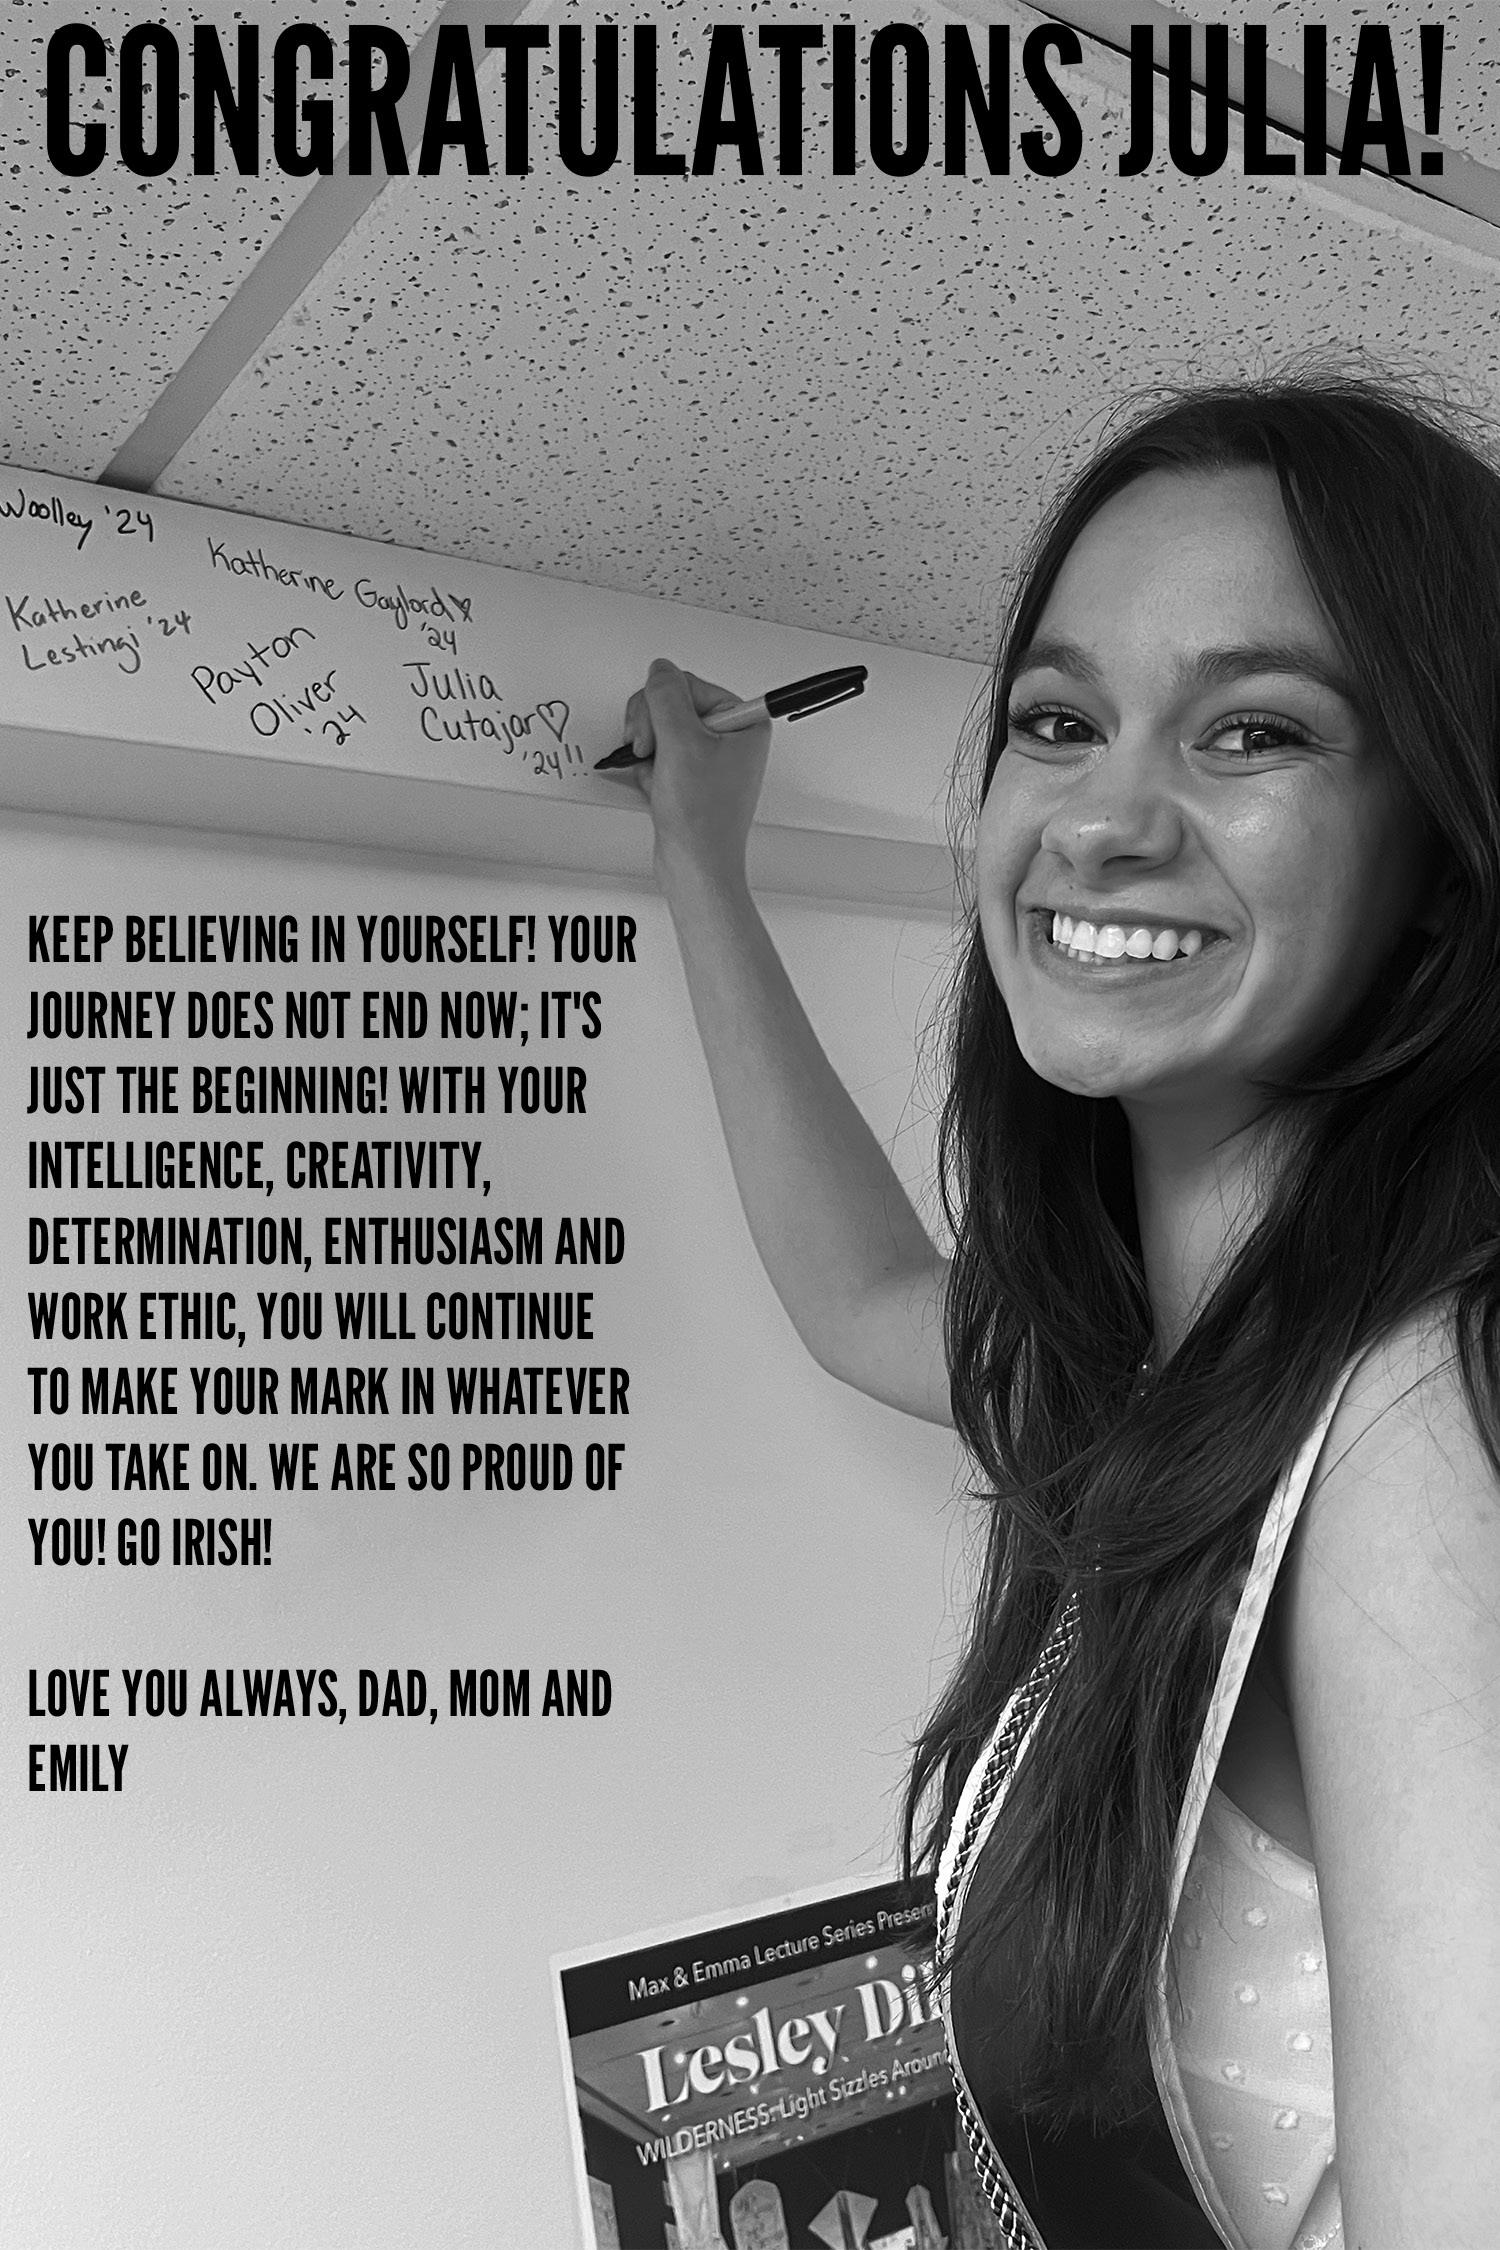 CONGRATULATIONS JULIA!
Woolley '24
Katherine Gaylord
'24
Katherine
Lestingi '24
Payton
Oliver
'24
Julia
Cutajar♡
'24!!
KEEP BELIEVING IN YOURSELF! YOUR
JOURNEY DOES NOT END NOW; IT'S
JUST THE BEGINNING! WITH YOUR
INTELLIGENCE, CREATIVITY,
DETERMINATION, ENTHUSIASM AND
WORK ETHIC, YOU WILL CONTINUE
TO MAKE YOUR MARK IN WHATEVER
YOU TAKE ON. WE ARE SO PROUD OF
YOU! GO IRISH!
LOVE YOU ALWAYS, DAD, MOM AND
EMILY
Max & Emma Lecture Series Present
Lesley Dil
WILDERNESS: Light Sizzles Around